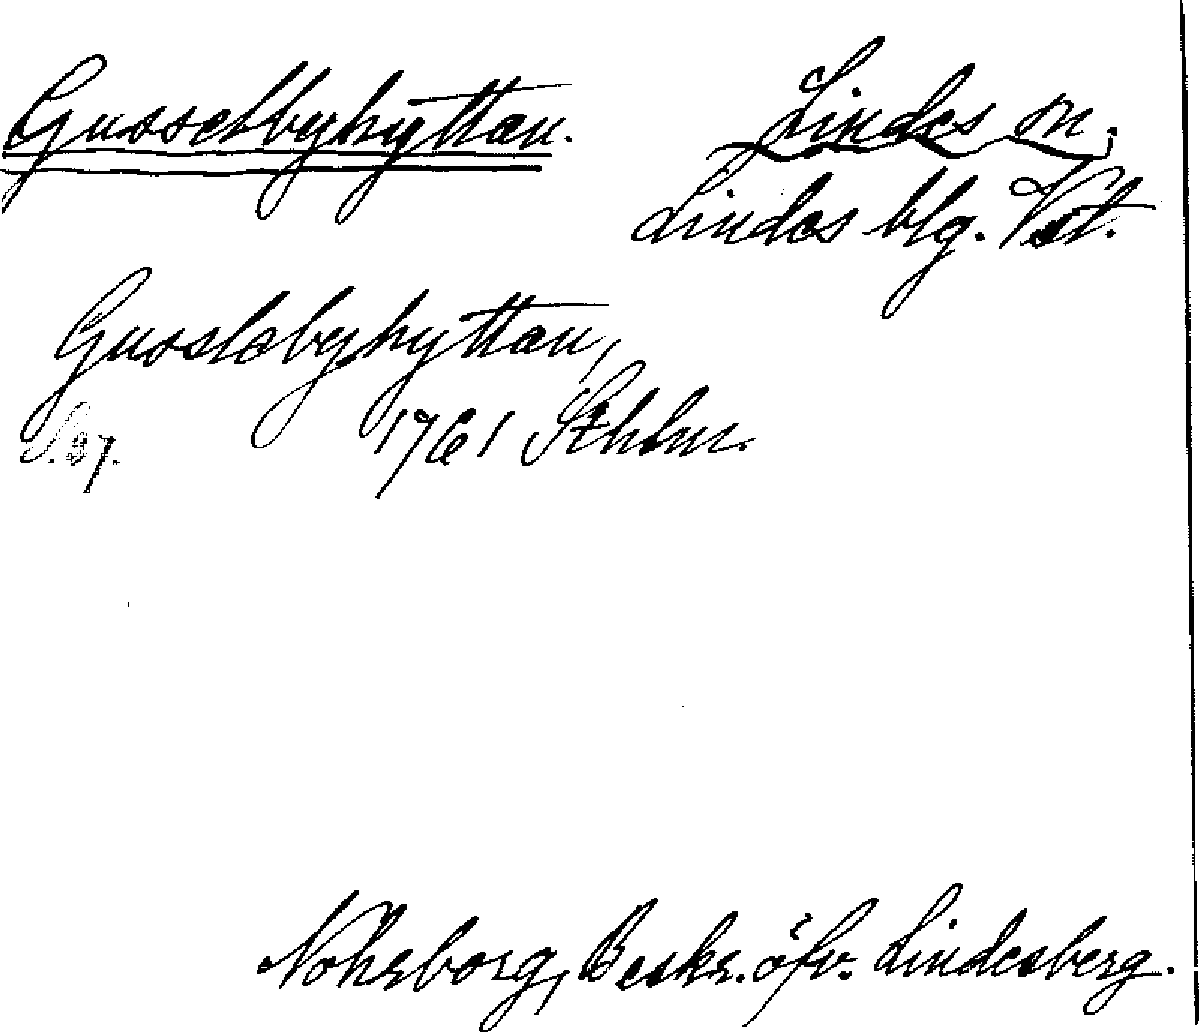 Gusselbyhyttan.
Lindes sn.
Lindes blg. Vstl.
Gusslebyhyttan,
S. 37. 1761 Sthlm.
Nohrborg, Beskr. öfv. Lindesberg.